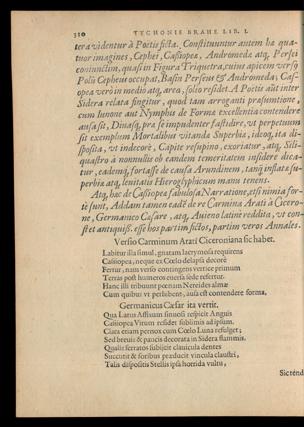 310 TYCHONIS BRAHE LIB. I.
tera videntur à Poëtis ficta. Constituuntur autem hæ qua-
tuor imagines, Cephei, Cassiopea, Andromeda atq; Persei
coniunctim, quasi in Figura Triquetra, cuius apicem versq
Polũ Cepheus occupat, Basin Perseus & Andromeda; Cas-
siopea verò in medio atq; area, solio residet. A Poëtis aũt inter
Sidera relata fingitur, quod tam arroganti præsumtione,
cum Iunone aut Nymphis de Formæ excellentia contendere
ausa sit, Deinasq; præ se impudenter fastidire, ut perpetuum
sit exemplum Mortalibus vitanda Superbia, ideoq; ita di-
sposita, ut indecorè, Capite resupino, exoriatur, atq;
quastro à nonnullis ob eandem temeritatem insidere dica-
tur, eademq; fortasse de causa Arundinem, tanq̃ inflata su-
perbia atq; levitatis Hieroglyphicum manu tenens.
Atq; hæc de Cassiopea fabulosa Narratione, etsi nimia for-
te sunt, Addam tamen eadẽ de re Carmina Arati à Cicero-
ne, Germanico Cæsare, atq; Avieno latinè reddita, ut con-
stet antiquiss. esse hos partim fictos, partim veros Annales.
Versio Carminum Arati Ciceroniana sic habet.
Labitur illa simul, gnatam lacrymosa requirens
Cassiopea, neque ex Cœlo delapsa decorè
Fertur, nam verso contingens vertice primum
Terras post humeros eversa sede refertur.
Hanc illi tribuunt pœnam Nereides almæ
Cum quibus ut perhibent, ausa est contendere forma.
Germanicus Cæsar ita vertit.
Qua Latus Afflatum sinuosi respicit Anguis
Cassiopea Virum residet sublimis ad ipsum.
Clara etiam pernox cum Cœlo Luna refulget;
Sed brevis & paucis decorata in Sidera flammis.
Qualis ferratos subijcit clavicula dentes
Succutit & foribus præducit vincula claustri,
Talis dispositis Stellis ipsa horrida vultu,
Sic tend